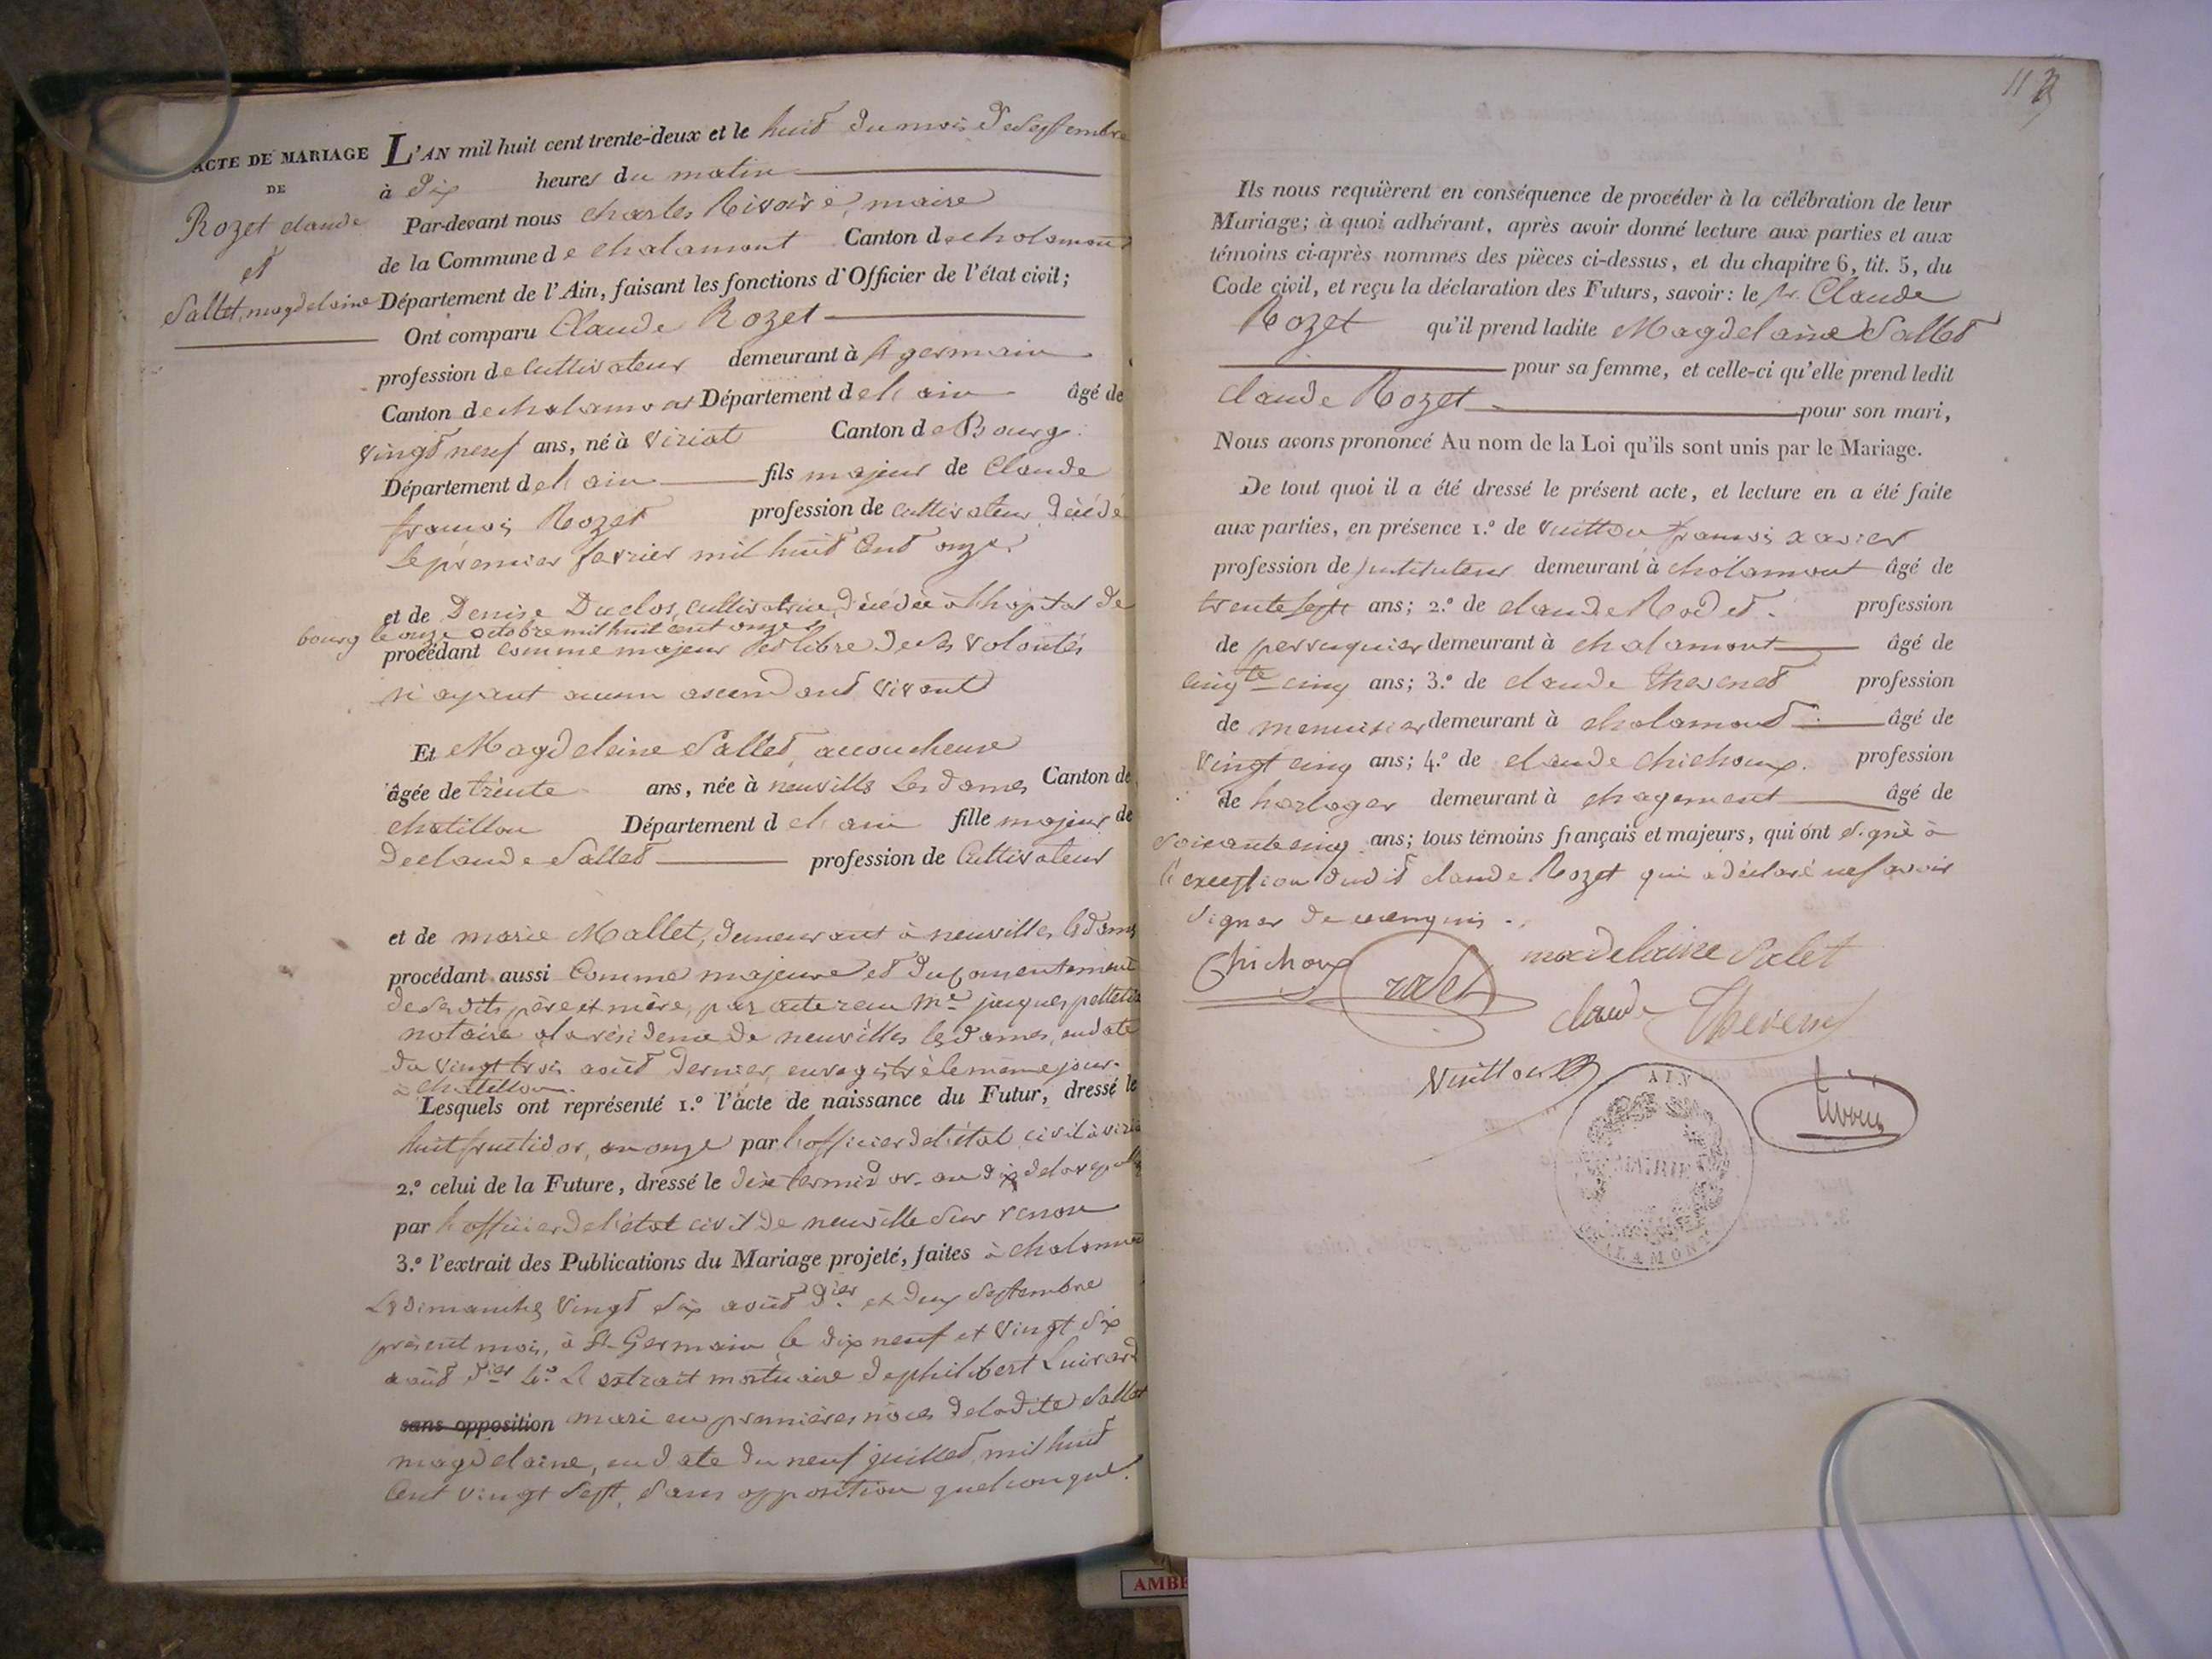 ACTE DE MARIAGE
DE
Rozet claude
et
Sallet magdelaine
L'AN mil huit cent trente-deux et le huit du mois de Septembre
à dix heures du matin
Par-devant nous charles Rivoire, maire
de la Commune de chalamont Canton de chalamont
Département de l'Ain, faisant les fonctions d'Officier de l'état civil;
Ont comparu Claude Rozet
profession de Cultivateur demeurant à St germain
Canton de chalamont Département de l'ain âgé de
vingt neuf ans, né à Viriat Canton de Bourg
Département de l'ain fils majeur de Claude
francois Rozet profession de cultivateur décédé
le premier fevrier mil huit cent onze
et de Denise Duclos, cultivatrice, décédée à l'hopital de
bourg le onze octobre mil huit cent onze
procédant comme majeur et libre de ses volontés
n'ayant aucun ascendant vivant
Et Magdeleine Sallet, accoucheuse
âgée de trente ans, née à neuville les dames Canton de
chatillon Département de l'ain fille majeur de
de claude Sallet profession de Cultivateur
et de marie Mallet, demeurant à neuville les dames
procédant aussi Comme majeure et du consentement
de ses dits père et mère, par acte reçu Me jacques
notaire à la résidence de neuville les dames, en date
du vingt trois août dernier, enregistré le même jour
à chatillon
Lesquels ont représenté 1.º l'acte de naissance du Futur, dressé le
huit fructidor, an onze par l'officier de l'état civil à
2.º celui de la Future, dressé le dix termidor an dix de la
par l'officier de l'état civil de neuville sur renon
3.º l'extrait des Publications du Mariage projeté, faites à chalamont
Les dimanches vingt six août der et deux Septembre
présent mois, à St Germain le dix neuf et vingt six
août der 4.º L'extrait mortuaire de philibert Luivard
sans opposition mari en premières nôces de ladite Sallet
magdelaine, en date du neuf juillet mil huit
cent vingt sept, sans opposition quelconque.
11
Ils nous requièrent en conséquence de procéder à la célébration de leur
Mariage; à quoi adhérant, après avoir donné lecture aux parties et aux
témoins ci-après nommés des pièces ci-dessus, et du chapitre 6, tit. 5, du
Code civil, et reçu la déclaration des Futurs, savoir: le Sr. Claude
Rozet qu'il prend ladite Magdelaine Sallet
pour sa femme, et celle-ci qu'elle prend ledit
claude Rozet pour son mari,
Nous avons prononcé Au nom de la Loi qu'ils sont unis par le Mariage.
De tout quoi il a été dressé le présent acte, et lecture en a été faite
aux parties, en présence 1.º de Vuitton francois xavier
profession de Instituteur demeurant à chalamont âgé de
trente sept ans; 2.º de claude Rodet profession
de perruquier demeurant à chalamont âgé de
cinqte cinq ans; 3.º de claude thevenet profession
de menuisier demeurant à chalamont âgé de
vingt cinq ans; 4.º de claude chichoux profession
de horloger demeurant à âgé de
soixante cinq ans; tous témoins français et majeurs, qui ont signé à
l'exception dudit claude Rozet qui a déclaré ne savoir
signer de ce enquis.
Chichoux rodet madelaine Salet
claude Thevenet
Vuitton
AIN
MAIRIE